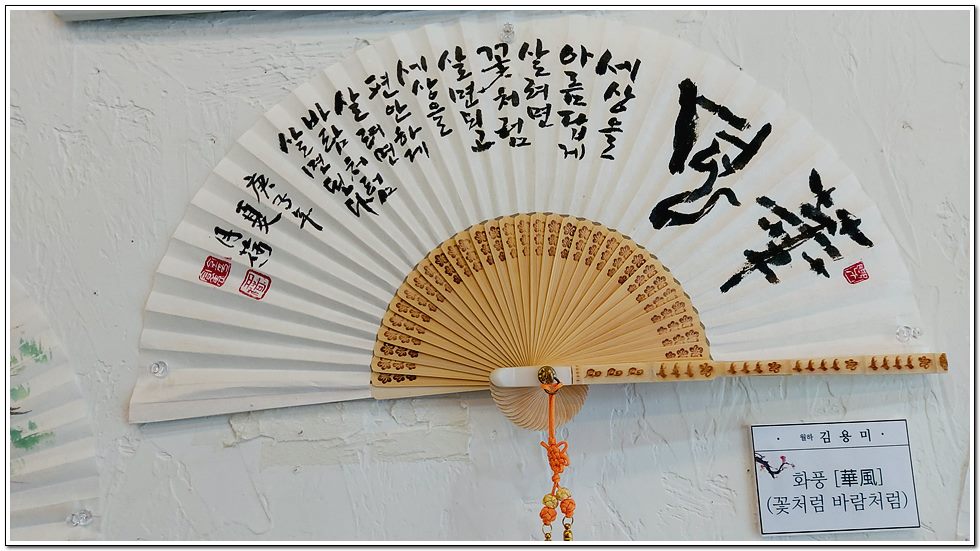 華
風
세상을
아름답게
살려면
꽃처럼
살면되고
세상을
편안하게
살려면
바람처럼
살면된다
庚子年
夏
· 월하 김용미 ·
화풍 [華風]
(꽃처럼 바람처럼)